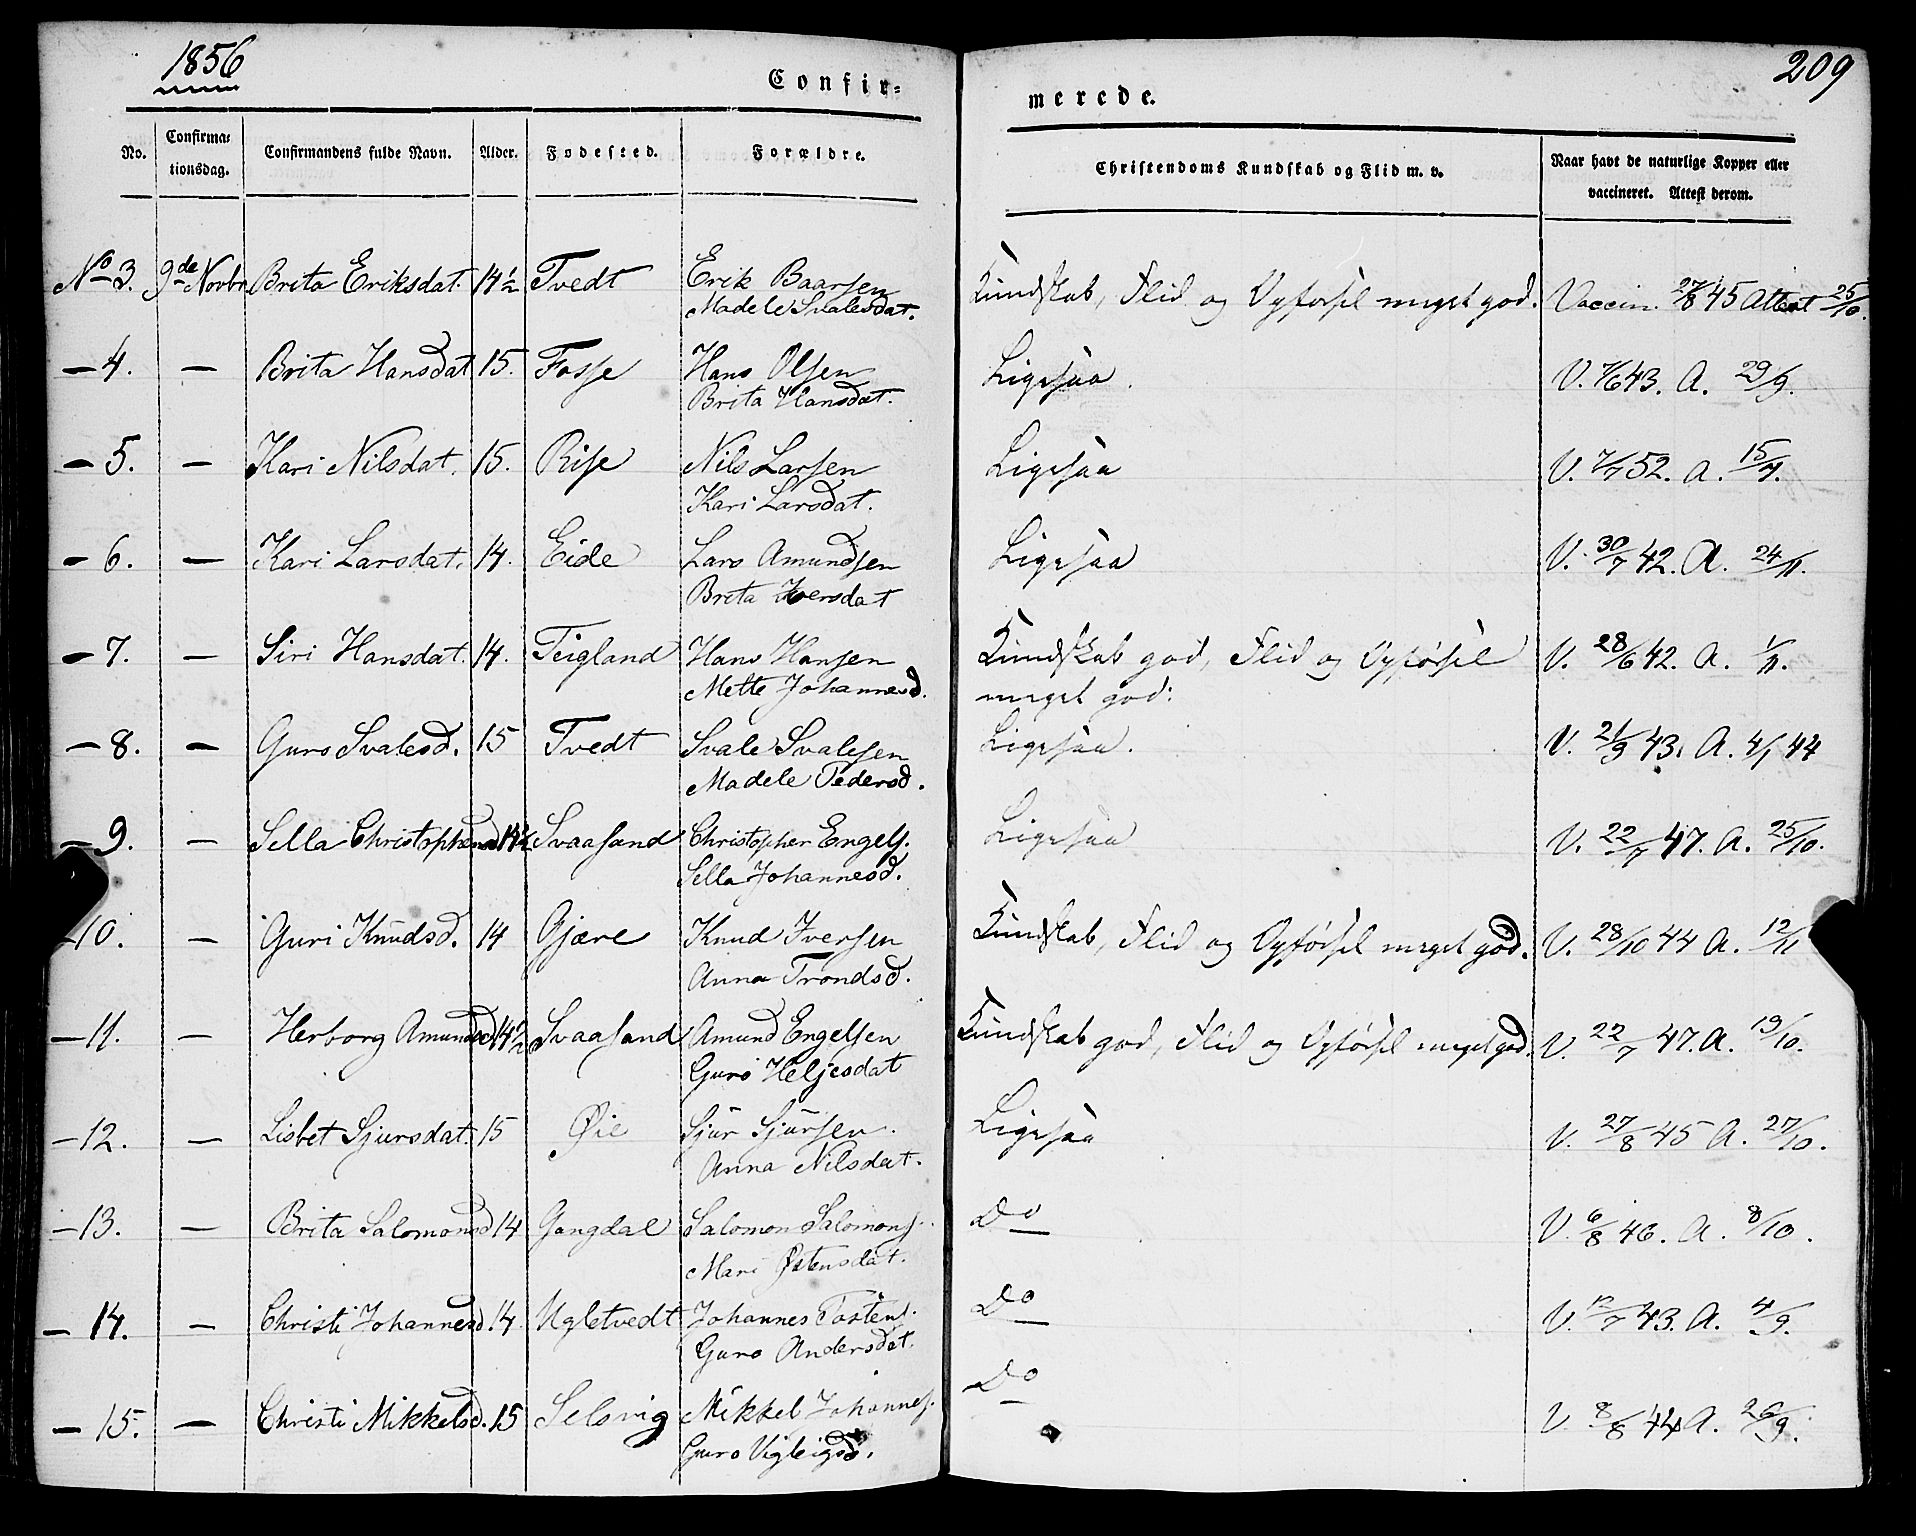 1856
209
Confir-
merede.
No.
Confirma-
tionsdag.
Confirmandens fulde Navn.
Alder.
Fødested.
Forældre.
Christendoms Kundskab og Flid m. v.
Naar havt de naturlige Kopper eller
vaccineret. Attest derom.
No 3. 9de Novbr. Brita Eriksdat. 14½ Tvedt Erik Baarsen Kundskab, Flid og Opførsel meget god. Vaccin. 27/8 45 Attest 25/10.
Madele Svalesdat.
— 4. — Brita Hansdat 15. Fosse Hans Olsen Ligesaa. V. 7/6 43. A. 29/9.
Brita Hansdat.
— 5. — Kari Nilsdat. 15. Rise Nils Larsen Ligesaa V. 7/7 52. A. 15/9.
Kari Larsdat.
— 6. — Kari Larsdat. 14. Eide Lars Amundsen Ligesaa V. 30/7 42. A. 24/11.
Brita Iversdat
— 7. — Siri Hansdat. 14. Teigland Hans Hansen Kundskab god, Flid og Opførsel V. 28/6 42. A. 1/11.
Mette Johannesd. meget god:
— 8. — Guro Svalesd. 15 Tvedt Svale Svalesen Ligesaa. V. 21/9 43. A. 4/1 44
Madele Pedersd.
— 9. — Sella Christophersd 14½ Svaasand Christopher Engels. Ligesaa V. 22/7 47. A. 25/10.
Sella Johannesd.
10. — Guri Knudsd. 14 Gjære Knud Iversen Kundskab, Flid og Opførsel meget god. V. 28/10 44 A. 12/11
Anna Trondsd.
— 11. — Herborg Amundsd 14½ Svaasand Amund Engelsen Kundskab god, Flid og Opførsel meget god. V. 22/7 47. A. 19/10.
Guro Heljesdat
— 12. — Lisbet Sjursdat. 15 Øie Sjur Sjursen. Ligesaa V. 27/8 45 A. 27/10.
Anna Nilsdat.
— 13. — Brita Salomonsd 14 Gangdal Salomon Salomons. Do V. 6/8 46. A. 8/10.
Mari Østensdat.
— 14. — Christi Johannesd. 14. Ugletvedt Johannes Tostens. Do V. 12/7 43. A. 4/9.
Guro Andersdat.
— 15. — Christi Mikkelsd. 15 Selsvig Mikkel Johannes. Do V. 8/8 44 A. 26/9.
Guro Vigleigsd.